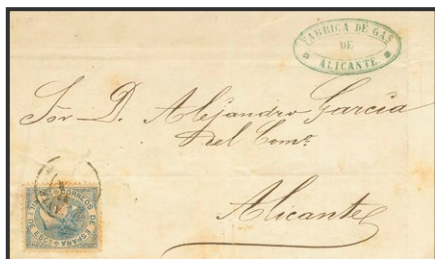 FABRICA DE GAS
DE
ALICANTE.
Sor. D. Alejandro García
del Como.
Alicante
CORREOS DE ESPAÑA